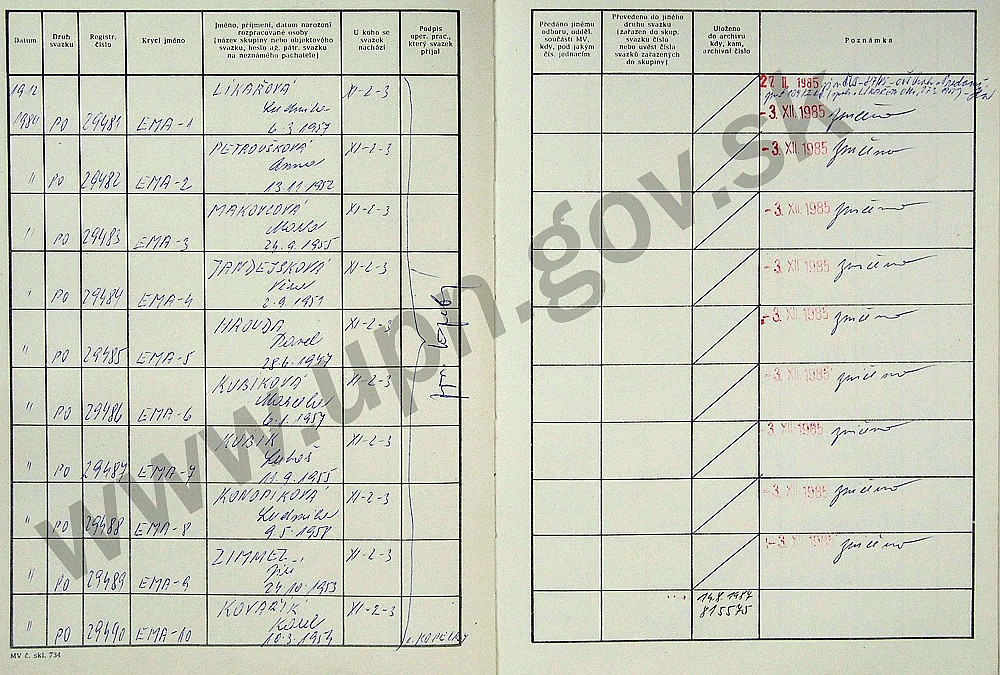 Datum
Druh svazku
Registr. číslo
Krycí jméno
Jméno, příjmení, datum narození
rozpracované osoby
[název skupiny nebo objektového
svazku, heslo až. pátr. svazku
na neznámého pachatele]
U koho se
svazek
nachází
Podpis
oper. prac.,
který svazek
přijal
Předáno jinému
odboru, odděl.
součásti MV,
kdy, pod jakým
čís. jednacím
Převedeno do jiného
druhu svazku
[zařazen do skup.
svazku číslo
nebo uvést čísla
svazků zařazených
do skupiny]
Uloženo
do archivu
kdy, kam,
archivní číslo
Poznámka
19.12 LIKAŘOVÁ XI-2-3 27. II. 1985
Ludmila
1984 PO 29481 EMA-1 6.3.1957 -3. XII. 1985 zničeno
PETROUŠKOVÁ XI-2-3 -3. XII. 1985 zničeno
Anna
" PO 29482 EMA-2 13.11.1952
MAKOVCOVÁ XI-2-3 -3. XII. 1985 zničeno
" PO 29483 EMA-3 24.9.1955
JANDEJSKOVÁ XI-2-3 -3. XII. 1985 zničeno
" PO 29484 EMA-4 2.9.1951
HROUDA XI-2-3 -3. XII. 1985 zničeno
Pavel
" PO 29485 EMA-5 28.6.1947
KUBIKOVÁ XI-2-3 -3. XII. 1985 zničeno
" PO 29486 EMA-6 6.1.1957
KUBIK XI-2-3 -3. XII. 1985 zničeno
Luboš
" PO 29487 EMA-7 11.9.1955
KONOPIKOVÁ XI-2-3 -3. XII. 1985 zničeno
Ludmila
" PO 29488 EMA-8 9.5.1958
ZIMMEL XI-2-3 -3. XII. 1985 zničeno
Jiří
" PO 29489 EMA-9 24.10.1953
KOVAŘÍK XI-2-3 14.8.1987
Karel 815575
" PO 29490 EMA-10 10.3.1954
MV č. skl. 734
www.upn.gov.sk